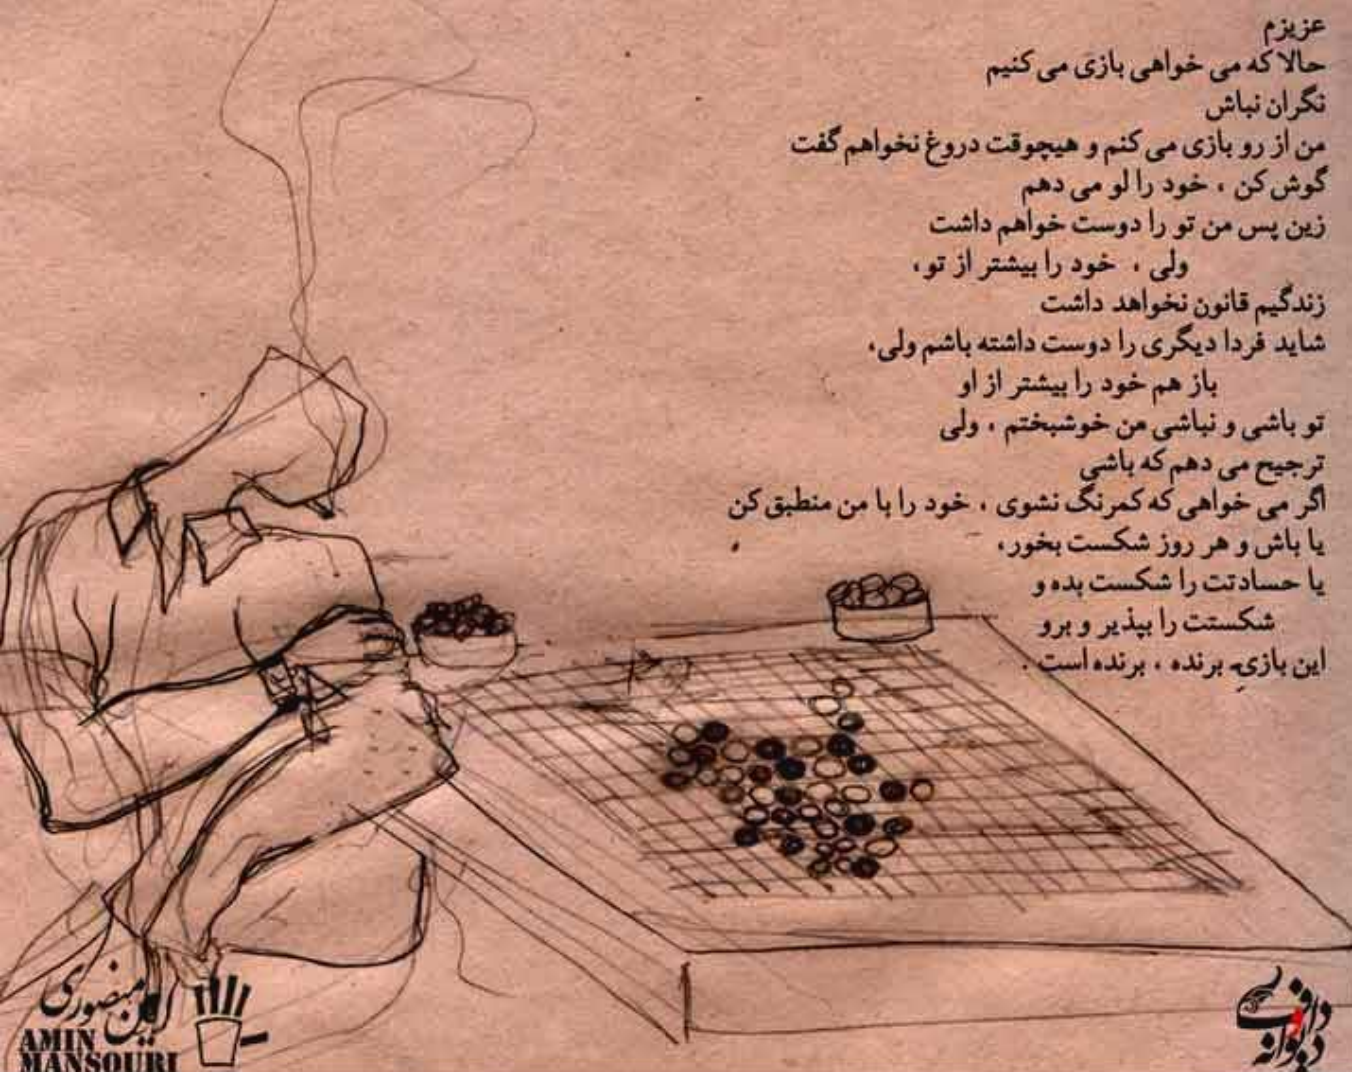 عزیزم
حالا که می خواهی بازی می کنیم
نگران نباش
من از رو بازی می کنم و هیچوقت دروغ نخواهم گفت
گوش کن ، خود را لو می دهم
زین پس من تو را دوست خواهم داشت
ولی ، خود را بیشتر از تو،
زندگیم قانون نخواهد داشت
شاید فردا دیگری را دوست داشته باشم ولی،
باز هم خود را بیشتر از او
تو باشی و نباشی من خوشبختم ، ولی
ترجیح می دهم که باشی
اگر می خواهی که کمرنگ نشوی ، خود را با من منطبق کن
یا باش و هر روز شکست بخور،
یا حسادتت را شکست بده و
شکستت را بپذیر و برو
این بازیِ برنده ، برنده است .
امین منصوری
AMIN
MANSOURI